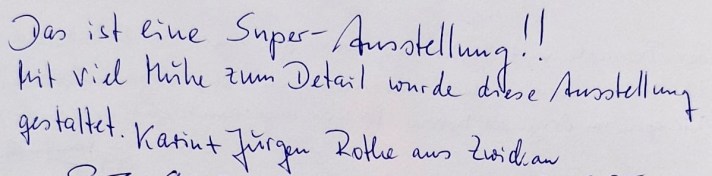 Das ist eine Super-Ausstellung!!
Mit viel Mühe zum Detail wurde diese Ausstellung
gestaltet. Karin + Jürgen Rothe aus Zwickau